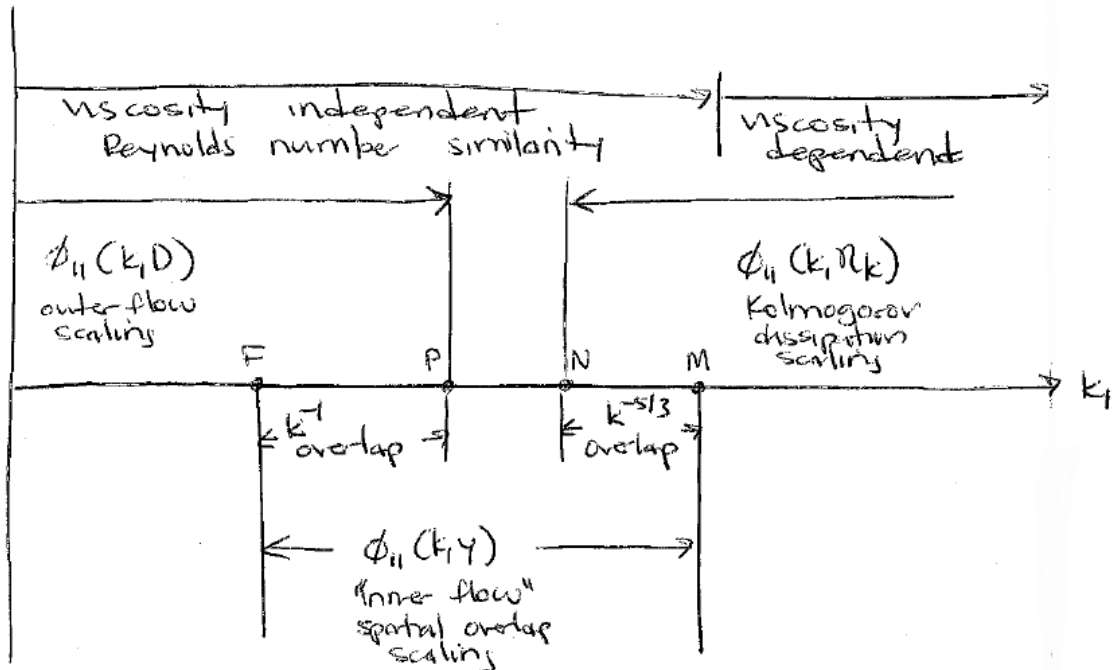 viscosity independent
Reynolds number similarity
viscosity
dependent
ϕ₁₁(k₁D)
outer flow
scaling
ϕ₁₁(k₁ηₖ)
Kolmogorov
dissipation
scaling
F
P
N
M
k₁
k⁻¹
overlap
k⁻⁵/³
overlap
ϕ₁₁(k₁y)
"inner flow"
spatial overlap
scaling